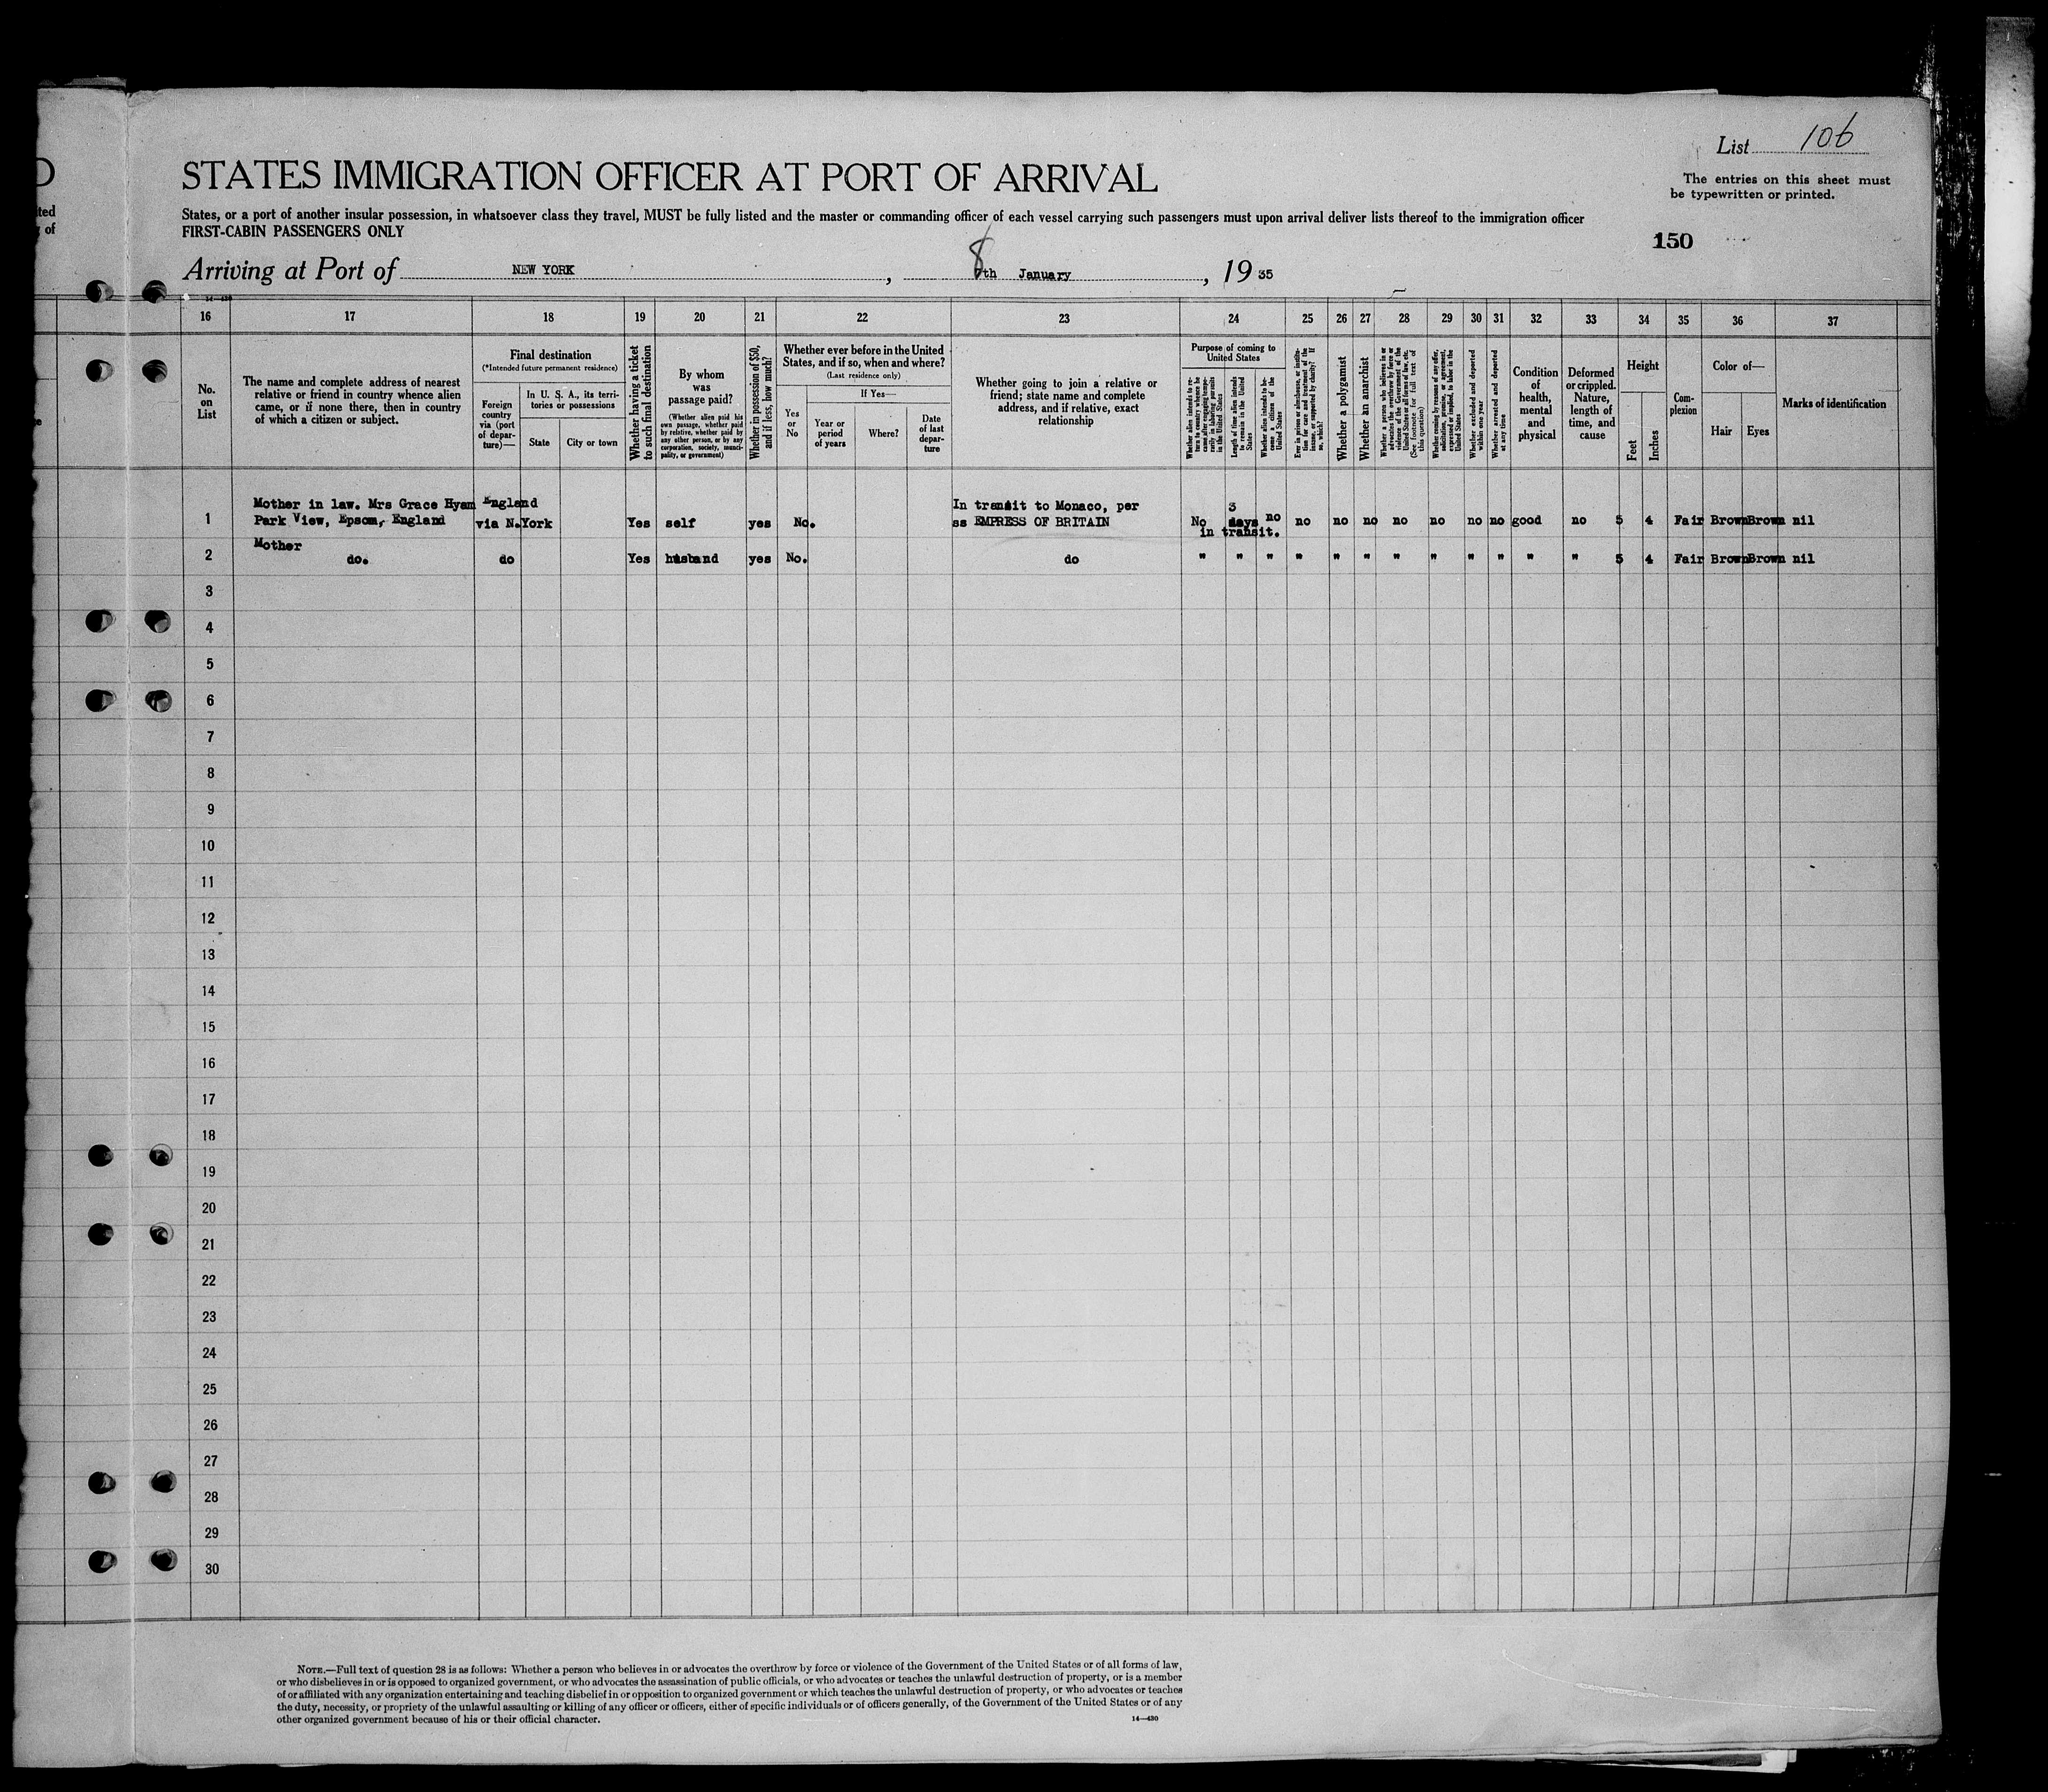 List 106
The entries on this sheet must
be typewritten or printed.
D
STATES IMMIGRATION OFFICER AT PORT OF ARRIVAL
ted
of
States, or a port of another insular possession, in whatsoever class they travel, MUST be fully listed and the master or commanding officer of each vessel carrying such passengers must upon arrival deliver lists thereof to the immigration officer
FIRST-CABIN PASSENGERS ONLY
150
Arriving at Port of NEW YORK, 8th January, 19 35
14—430
16 17 18 19 20 21 22 23 24 25 26 27 28 29 30 31 32 33 34 35 36 37
No.
on
List
The name and complete address of nearest
relative or friend in country whence alien
came, or if none there, then in country
of which a citizen or subject.
Final destination
(*Intended future permanent residence)
Foreign
country
via (port
of depar-
ture)—
In U. S. A., its terri-
tories or possessions
State
City or town
Whether having a ticket
to such final destination
By whom
was
passage paid?
(Whether alien paid his
own passage, whether paid
by relative, whether paid by
any other person, or by any
corporation, society, munici-
pality, or government)
Whether in possession of $50,
and if less, how much?
Whether ever before in the United
States, and if so, when and where?
(Last residence only)
Yes
or
No
If Yes—
Year or
period
of years
Where?
Date
of last
depar-
ture
Whether going to join a relative or
friend; state name and complete
address, and if relative, exact
relationship
Purpose of coming to
United States
Whether alien intends to re-
turn to country whence he
came after engaging tempo-
rarily in laboring pursuits
in the United States
Length of time alien intends
to remain in the United
States
Whether alien intends to be-
come a citizen of the
United States
Ever in prison or almshouse, or institu-
tion for care and treatment of the
insane, or supported by charity? If
so, which?
Whether a polygamist
Whether an anarchist
Whether a person who believes in or
advocates the overthrow by force or
violence of the Government of the
United States or all forms of law, etc.
(See footnote for full text of
this question)
Whether coming by reason of any offer,
solicitation, promise, or agreement,
expressed or implied, to labor in the
United States
Whether excluded and deported
within one year
Whether arrested and deported
at any time
Condition
of
health,
mental
and
physical
Deformed
or crippled.
Nature,
length of
time, and
cause
Height
Feet
Inches
Com-
plexion
Color of—
Hair
Eyes
Marks of identification
Mother in law. Mrs Grace Hyam England In transit to Monaco, per 3
1 Park View, Epsom, England via N.York Yes self yes No. ss EMPRESS OF BRITAIN No days no no no no no no no no good no 5 4 Fair Brown Brown nil
in transit.
Mother
2 do. do Yes husband yes No. do " " " " " " " " " " " " 5 4 Fair Brown Brown nil
3
4
5
6
7
8
9
10
11
12
13
14
15
16
17
18
19
20
21
22
23
24
25
26
27
28
29
30
NOTE.—Full text of question 28 is as follows: Whether a person who believes in or advocates the overthrow by force or violence of the Government of the United States or of all forms of law,
or who disbelieves in or is opposed to organized government, or who advocates the assassination of public officials, or who advocates or teaches the unlawful destruction of property, or is a member
of or affiliated with any organization entertaining and teaching disbelief in or opposition to organized government or which teaches the unlawful destruction of property, or who advocates or teaches
the duty, necessity, or propriety of the unlawful assaulting or killing of any officer or officers, either of specific individuals or of officers generally, of the Government of the United States or of any
other organized government because of his or their official character.
14—430